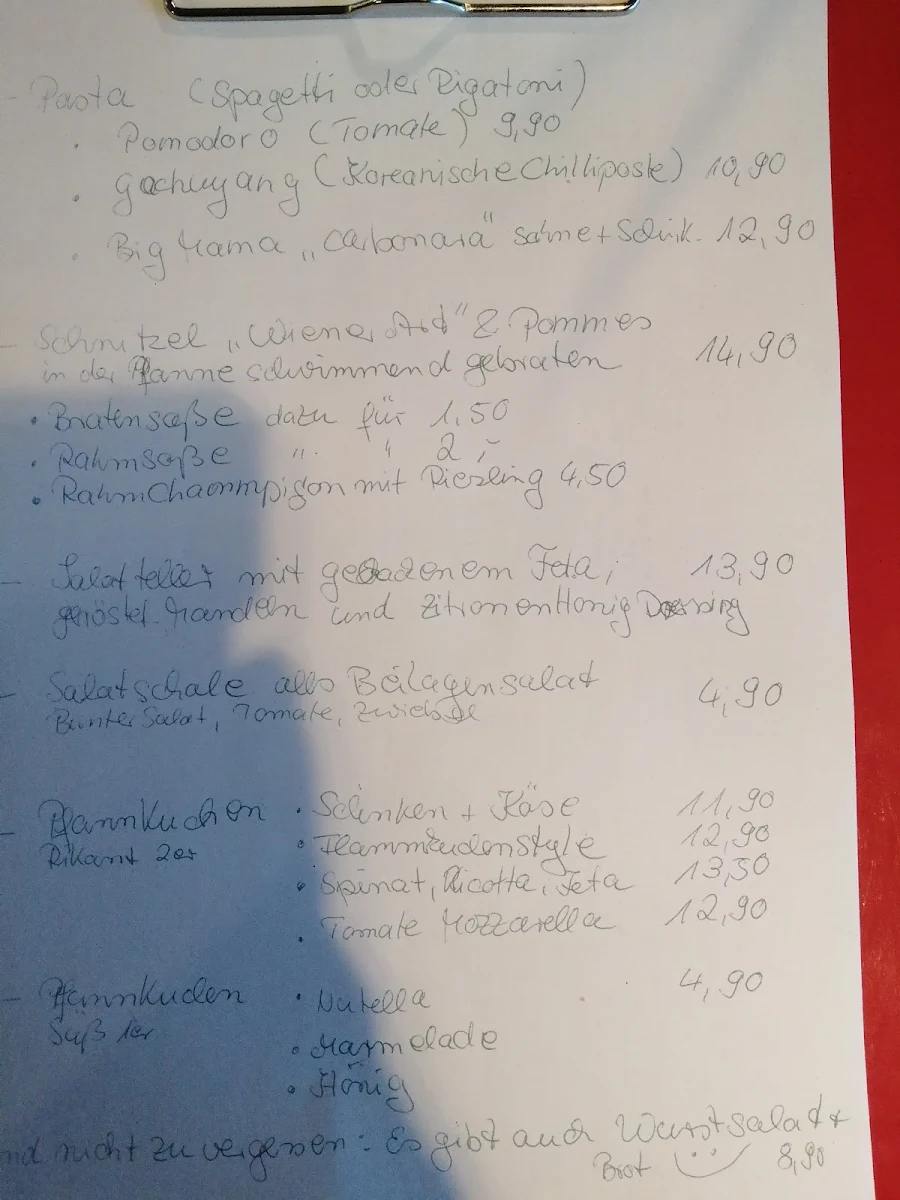 - Pasta (Spagetti oder Rigatoni)
· Pomodoro (Tomate) 9,90
· gochuyang (Koreanische Chillipaste) 10,90
· Big Mama „Carbonara" Sahne + Schik. 12,90
- Schnitzel „Wiener Art" & Pommes
in der Pfanne schwimmend gebraten 14,90
• Bratensoße dazu für 1,50
• Rahmsoße " " 2,-
• RahmChaompigon mit Riesling 4,50
- Salatteller mit gebackenem Feta, 13,90
geröstet. Mandeln und ZitronenHonig Dressing
- Salatschale als Beilagensalat 4,90
Bunter Salat, Tomate, Zwiebel
- Pfannkuchen • Schinken + Käse 11,90
Pikant 2er • Flammkuchenstyle 12,90
• Spinat, Ricotta, Feta 13,50
• Tomate Mozzarella 12,90
- Pfannkuchen • Nutella 4,90
Süß 1er • Marmelade
• Honig
nd nicht zu vergessen: Es gibt auch Wurstsalat +
Brot 8,90